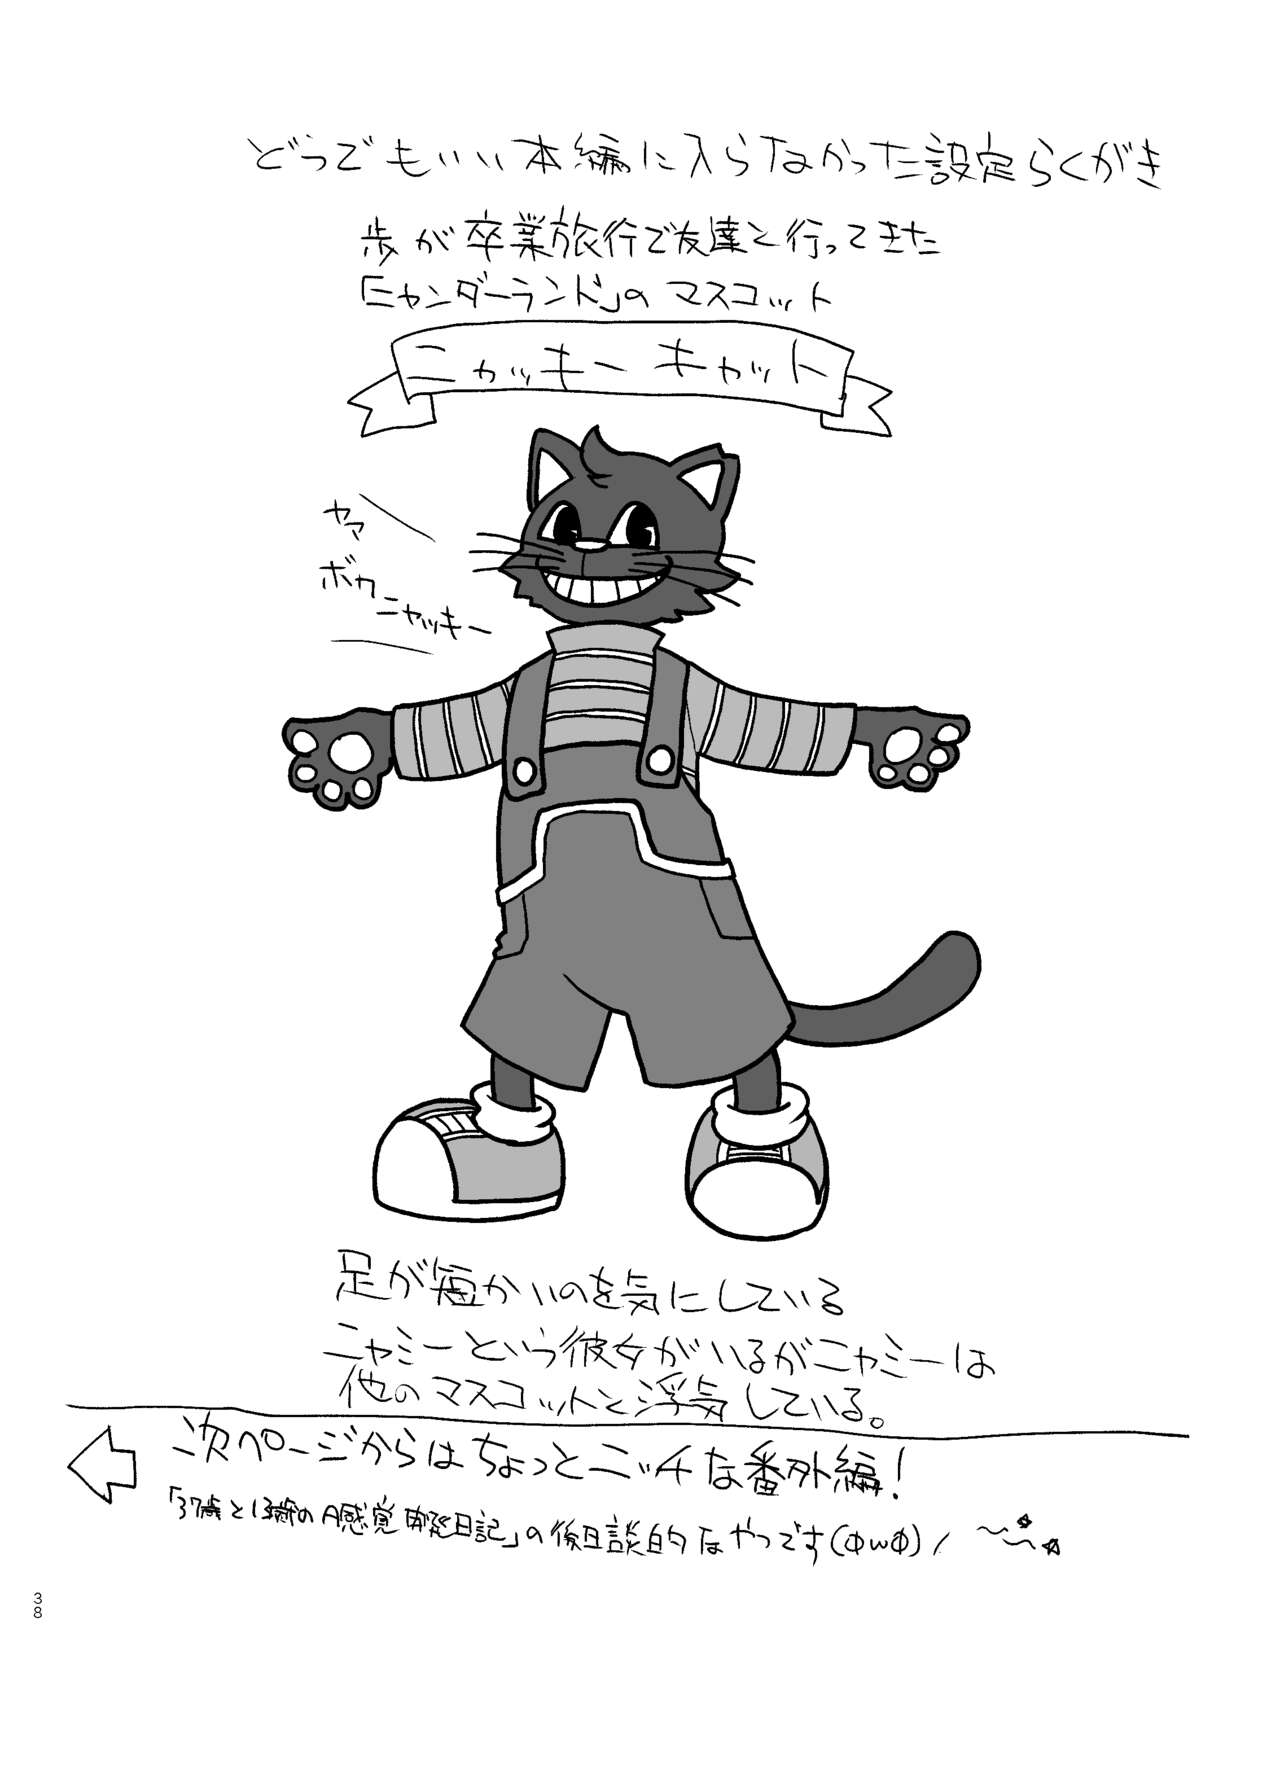 どうでもいい本編に入らなかった設定らくがき
歩が卒業旅行で友達と行ってきた
「ニャンダーランド」のマスコット
ニャッキーキャット
ヤァ
ボク
ニャッキー
足が短かいのを気にしている
ニャミーという彼女がいるがニャミーは
他のマスコットと浮気している。
次ページからはちょっとニッチな番外編!
の後日談的なやつです(ΦωΦ)ノ
38